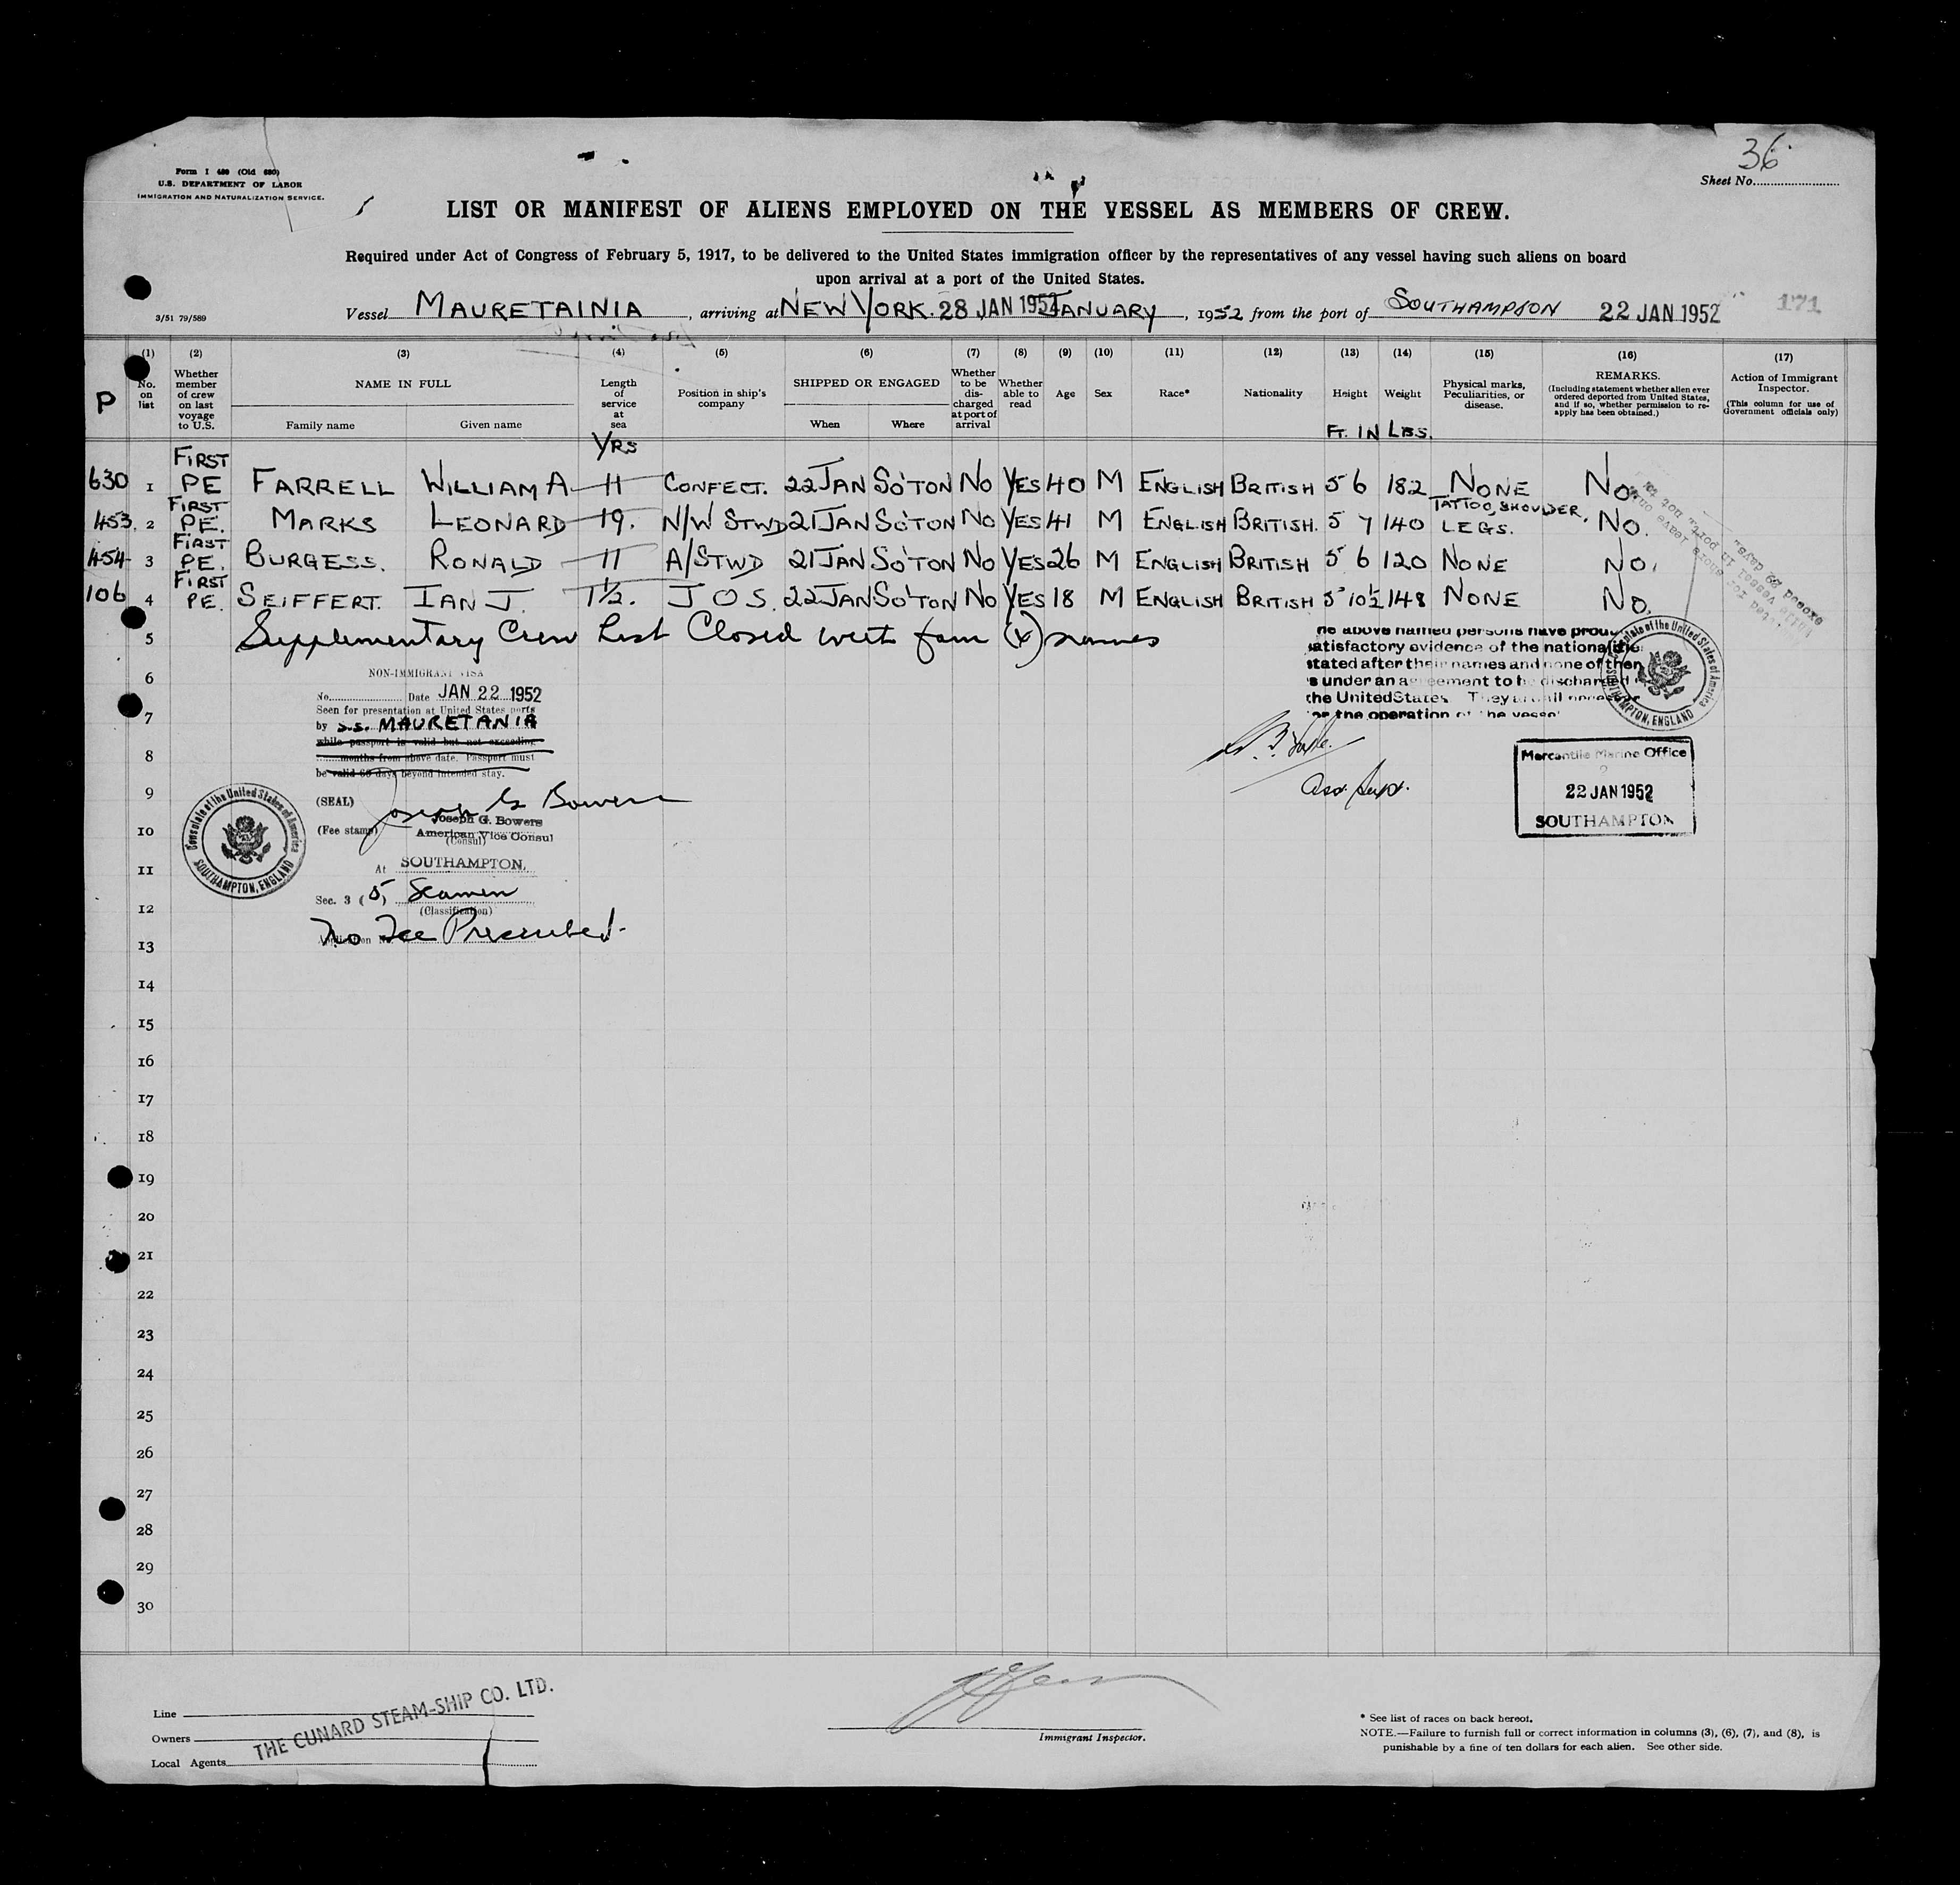 36
Form I 489 (Old 680)
U.S. DEPARTMENT OF LABOR
IMMIGRATION AND NATURALIZATION SERVICE.
Sheet No.
LIST OR MANIFEST OF ALIENS EMPLOYED ON THE VESSEL AS MEMBERS OF CREW.
Required under Act of Congress of February 5, 1917, to be delivered to the United States immigration officer by the representatives of any vessel having such aliens on board
upon arrival at a port of the United States.
3/51 79/589
Vessel MAURETAINIA, arriving at NEW YORK. 28 JAN 1952 JANUARY, 1952 from the port of SOUTHAMPSON 22 JAN 1952 171
(1) (2) (3) (4) (5) (6) (7) (8) (9) (10) (11) (12) (13) (14) (15) (16) (17)
P
No. on list
Whether member of crew on last voyage to U.S.
NAME IN FULL
Family name Given name
Length of service at sea
YRS
Position in ship's company
SHIPPED OR ENGAGED
When Where
Whether to be discharged at port of arrival
Whether able to read
Age
Sex
Race*
Nationality
Height
FT. IN
Weight
LBS.
Physical marks, Peculiarities, or disease.
REMARKS.
(Including statement whether alien ever ordered deported from United States, and if so, whether permission to re-apply has been obtained.)
Action of Immigrant Inspector.
(This column for use of Government officials only)
630 1 FIRST PE FARRELL WILLIAM A 11 CONFECT. 22 JAN SO'TON NO YES 40 M ENGLISH BRITISH 5 6 182 NONE NO.
453. 2 FIRST PE. MARKS LEONARD 19. N/W STWD 21 JAN SO'TON NO YES 41 M ENGLISH BRITISH. 5 7 140 TATTOO, SHOULDER, LEGS. NO.
454 3 FIRST PE. BURGESS. RONALD 11 A/STWD 21 JAN SO'TON NO YES 26 M ENGLISH BRITISH 5 6 120 NONE NO.
106 4 FIRST PE. SEIFFERT. IAN J. 1½. J O S. 22 JAN SO'TON NO YES 18 M ENGLISH BRITISH 5 10½ 148 NONE NO.
5 Supplementary Crew List Closed with four (4) names
6
7
8
9
10
11
12
13
14
15
16
17
18
19
20
21
22
23
24
25
26
27
28
29
30
NON-IMMIGRANT VISA
No. Date JAN 22 1952
Seen for presentation at United States ports
by S.S. MAURETANIA
while passport is valid but not exceeding
months from above date. Passport must
be valid 60 days beyond intended stay.
(SEAL) Joseph G. Bowers
(Fee stamp) Joseph G. Bowers
American Vice Consul
(Consul)
At SOUTHAMPTON,
Sec. 3 (5) Seamen
(Classification)
No Fee Prescribed.
Consulate of the United States of America
SOUTHAMPTON, ENGLAND
above named persons have
satisfactory evidence of the
stated after their names and none of them
under an agreement to be discharged
the United States. They are all
the operation of the vessel
Consulate of the United States of America
SOUTHAMPTON, ENGLAND
Asst. Supt.
Mercantile Marine Office
22 JAN 1952
SOUTHAMPTON
Line
Owners
Local Agents
THE CUNARD STEAM-SHIP CO. LTD.
Immigrant Inspector.
* See list of races on back hereof.
NOTE.—Failure to furnish full or correct information in columns (3), (6), (7), and (8), is
punishable by a fine of ten dollars for each alien. See other side.